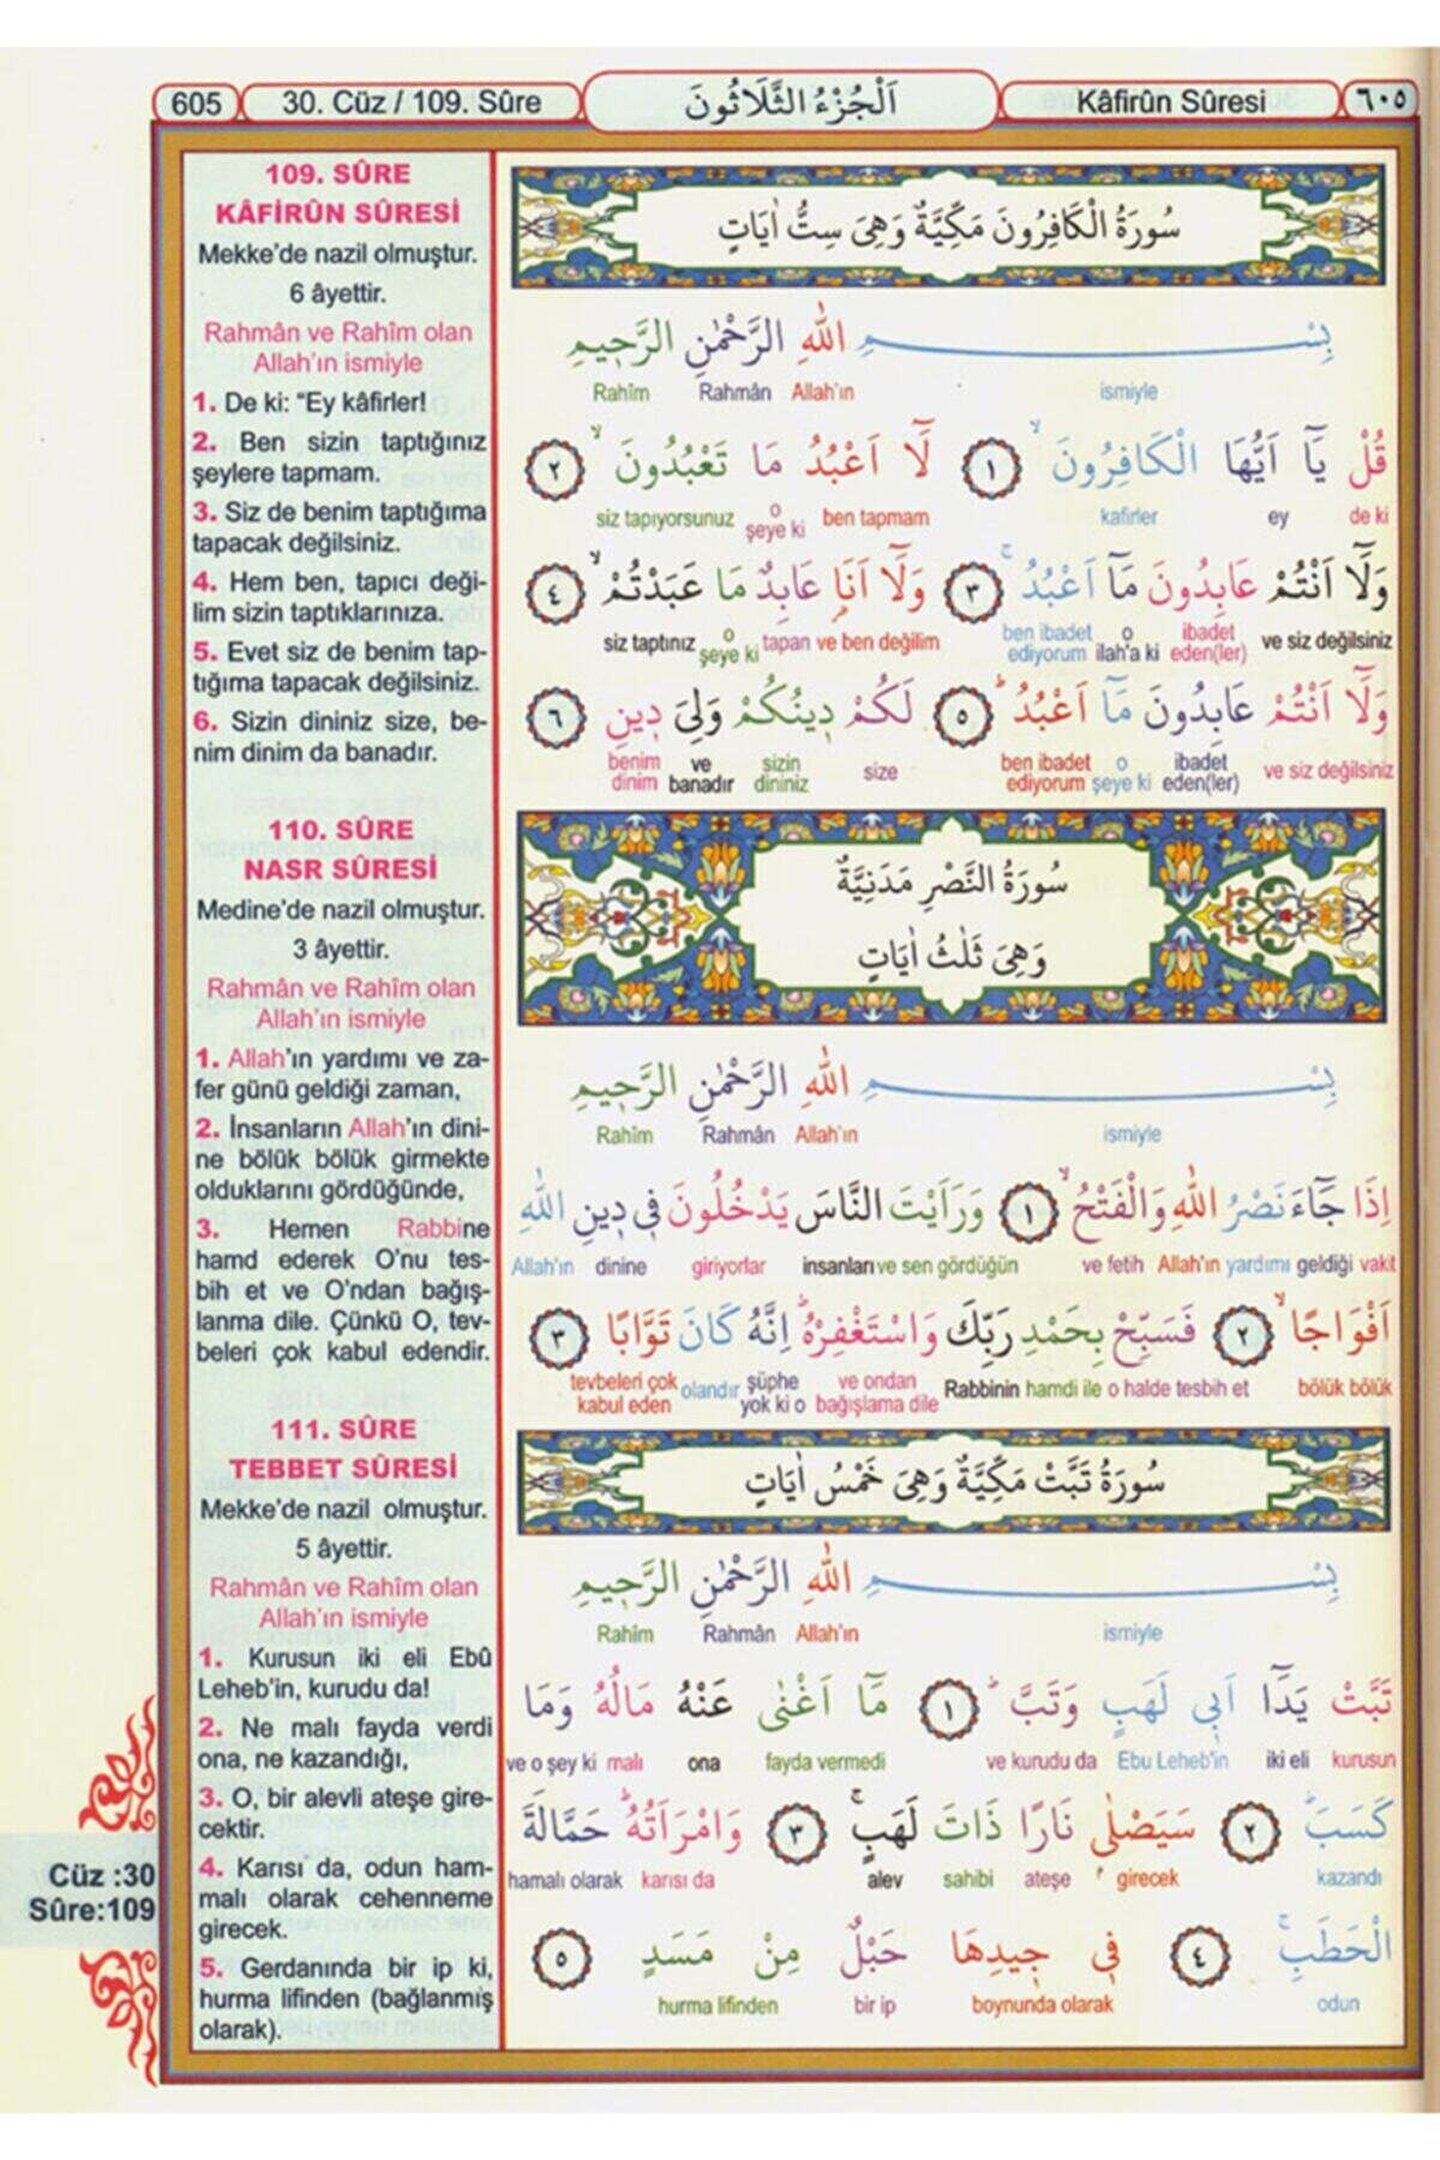 605
30. Cüz / 109. Sûre
اَلْجُزْءُ الثَّلَاثُونَ
Kâfirûn Sûresi
٦٠٥
109. SÛRE
KÂFİRÛN SÛRESİ
Mekke’de nazil olmuştur.
6 âyettir.
Rahmân ve Rahîm olan
Allah’ın ismiyle
1. De ki: “Ey kâfirler!
2. Ben sizin taptığınız
şeylere tapmam.
3. Siz de benim taptığıma
tapacak değilsiniz.
4. Hem ben, tapıcı deği-
lim sizin taptıklarınıza.
5. Evet siz de benim tap-
tığıma tapacak değilsiniz.
6. Sizin dininiz size, be-
nim dinim da banadır.
110. SÛRE
NASR SÛRESİ
Medine’de nazil olmuştur.
3 âyettir.
Rahmân ve Rahîm olan
Allah’ın ismiyle
1. Allah’ın yardımı ve za-
fer günü geldiği zaman,
2. İnsanların Allah’ın dini-
ne bölük bölük girmekte
olduklarını gördüğünde,
3. Hemen Rabbine
hamd ederek O’nu tes-
bih et ve O’ndan bağış-
lanma dile. Çünkü O, tev-
beleri çok kabul edendir.
111. SÛRE
TEBBET SÛRESİ
Mekke’de nazil olmuştur.
5 âyettir.
Rahmân ve Rahîm olan
Allah’ın ismiyle
1. Kurusun iki eli Ebû
Leheb’in, kurudu da!
2. Ne malı fayda verdi
ona, ne kazandığı,
3. O, bir alevli ateşe gire-
cektir.
4. Karısı da, odun ham-
malı olarak cehenneme
girecek.
5. Gerdanında bir ip ki,
hurma lifinden (bağlanmış
olarak).
سُورَةُ الْكَافِرُونَ مَكِّيَّةٌ وَهِىَ سِتُّ اٰيَاتٍ
بِسْمِ اللّٰهِ الرَّحْمٰنِ الرَّح۪يمِ
ismiyle Allah’ın Rahmân Rahîm
قُلْ يَٓا اَيُّهَا الْكَافِرُونَۙ ﴿١﴾ لَٓا اَعْبُدُ مَا تَعْبُدُونَۙ ﴿٢﴾
de ki ey kafirler ben tapmam o şeye ki siz tapıyorsunuz
وَلَٓا اَنْتُمْ عَابِدُونَ مَٓا اَعْبُدُۚ ﴿٣﴾ وَلَٓا اَنَا۬ عَابِدٌ مَا عَبَدْتُمْۙ ﴿٤﴾
ve siz değilsiniz ibadet eden(ler) o ilah’a ki ben ibadet ediyorum ve ben değilim tapan o şeye ki siz taptınız
وَلَٓا اَنْتُمْ عَابِدُونَ مَٓا اَعْبُدُۜ ﴿٥﴾ لَكُمْ د۪ينُكُمْ وَلِىَ د۪ينِ ﴿٦﴾
ve siz değilsiniz ibadet eden(ler) o şeye ki ben ibadet ediyorum size sizin dininiz ve banadır benim dinim
سُورَةُ النَّصْرِ مَدَنِيَّةٌ
وَهِىَ ثَلٰثُ اٰيَاتٍ
بِسْمِ اللّٰهِ الرَّحْمٰنِ الرَّح۪يمِ
ismiyle Allah’ın Rahmân Rahîm
اِذَا جَٓاءَ نَصْرُ اللّٰهِ وَالْفَتْحُۙ ﴿١﴾ وَرَاَيْتَ النَّاسَ يَدْخُلُونَ ف۪ى د۪ينِ اللّٰهِ
vakit geldiği yardımı Allah’ın ve fetih ve sen gördüğün insanları giriyorlar dinine Allah’ın
اَفْوَاجًاۙ ﴿٢﴾ فَسَبِّحْ بِحَمْدِ رَبِّكَ وَاسْتَغْفِرْهُۜ اِنَّهُ كَانَ تَوَّابًا ﴿٣﴾
bölük bölük o halde tesbih et hamdi ile Rabbinin ve ondan bağışlama dile şüphe yok ki o olandır tevbeleri çok kabul eden
سُورَةُ تَبَّتْ مَكِّيَّةٌ وَهِىَ خَمْسُ اٰيَاتٍ
بِسْمِ اللّٰهِ الرَّحْمٰنِ الرَّح۪يمِ
ismiyle Allah’ın Rahmân Rahîm
تَبَّتْ يَدَٓا اَب۪ى لَهَبٍ وَتَبَّۜ ﴿١﴾ مَٓا اَغْنٰى عَنْهُ مَالُهُ وَمَا
kurusun iki eli Ebu Leheb’in ve kurudu da fayda vermedi ona malı ve o şey ki
كَسَبَۜ ﴿٢﴾ سَيَصْلٰى نَارًا ذَاتَ لَهَبٍۚ ﴿٣﴾ وَامْرَاَتُهُۜ حَمَّالَةَ
kazandı girecek ateşe sahibi alev karısı da hamalı olarak
الْحَطَبِۚ ﴿٤﴾ ف۪ى ج۪يدِهَا حَبْلٌ مِنْ مَسَدٍ ﴿٥﴾
odun boynunda olarak bir ip hurma lifinden
Cüz :30
Sûre:109